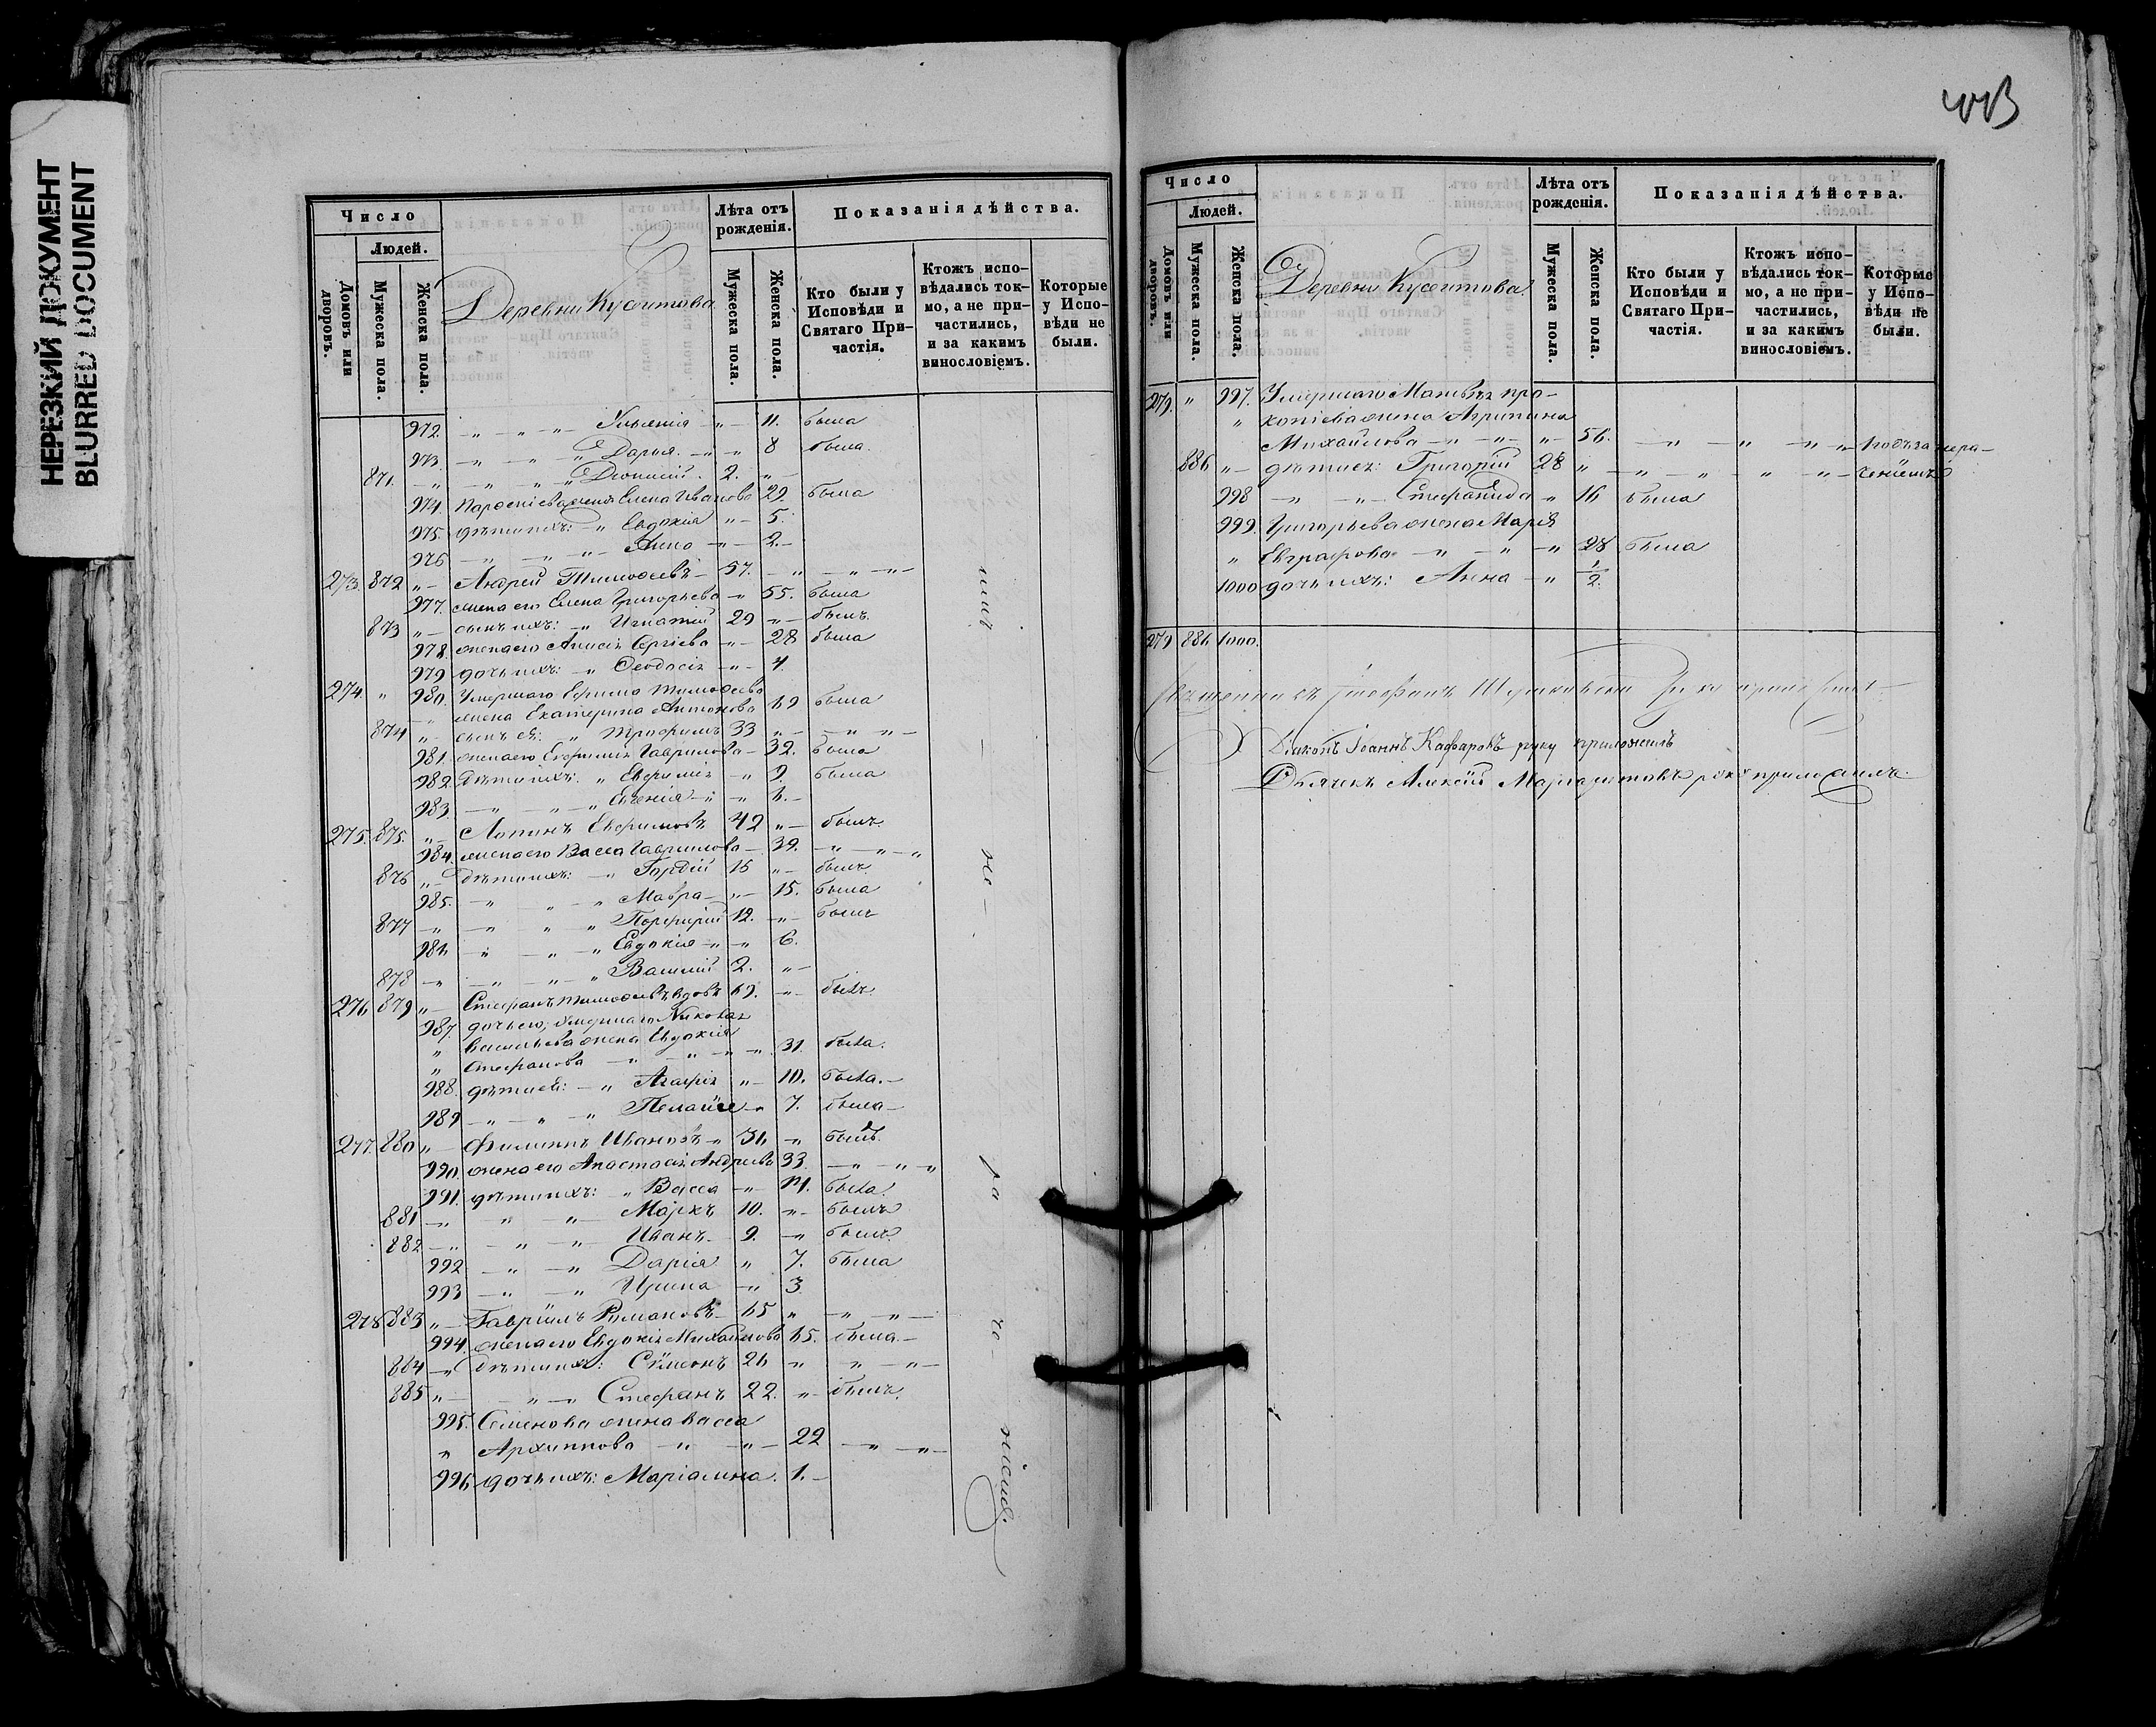 НЕРЕЗКИЙ ДОКУМЕНТ
BLURRED DOCUMENT
Число
Людей.
Домовъ или дворовъ.
Мужеска пола.
Женска пола.
Деревни Кусеитова
Лѣта отъ рожденія.
Мужеска пола.
Женска пола.
Показанія дѣйства.
Кто были у Исповѣди и Святаго Причастія.
Ктожъ исповѣдались токмо, а не причастились, и за какимъ винословіемъ.
Которые у Исповѣди не были.
972. — „ — „ — „ Ульянія — „ — 11. была
973. — „ — „ — „ Дарья — „ — 8 была
871. — „ — „ — „ Діонисій 2. „ —
974. жена Елена Иванова 29. была
975. дѣти ихъ: „ Евдокія „ — 5.
976 — „ — „ — Анна — „ — 2. —
273. 872 „ — Андрей Тимоѳеевъ — 57. — „ — „ — „ —
977. жена его Елена Григорьева — „ 55. была
873 „ — сынъ ихъ: — „ Игнатій 29 „ — былъ
978. жена его Анисія Сергіева — „ — 28 была
979 дочь ихъ: — „ Ѳеодосія — „ — 4.
274. „ 980. Умершаго Ефима Тимоѳеева
— „ жена Екатерина Антонова 69 была
874 „ — сынъ ея: „ Трофимъ 33 „ — — „ — „ —
981. жена его Евфимія Гаврилова — 32. была
982. Дѣти ихъ: „ Евфимія — „ 9. была
983. — „ — „ — „ Евгенія — „ — 6. —
275. 875. „ — Логинъ Евфимовъ 42 „ — былъ
984. жена его Васса Гаврилова — 39. — „ — „ — „
876 „ — дѣти ихъ: — „ Гордій 16 „ — былъ
985. — „ — „ — „ Мавра — „ — 15. была
877 — „ — „ — „ Порфирій 12. — „ — былъ
986 — „ — „ — „ Евдокія — „ — „ 6.
878 — „ — „ — „ Василій 2. „ —
276 879 „ — Стефанъ Тимоѳеевъ вдовъ 69. — „ — былъ
987. дочь его, умершаго Николая
„ Васильева жена Евдокія
„ Стефанова — „ — „ — „ — „ 31. была
988. дѣти ея: — „ Агафія „ — 10. была. —
989 — „ — „ — „ Пелагія — „ 7. была —
277. 880 „ — Филиппъ Ивановъ — „ 36 — „ былъ
990. жена его Анастасія Андреева 33. — „ — „ — „
991. дѣти ихъ: „ Васса — „ — 14. была
881 — „ „ — „ Маркъ 10. — „ — былъ
882 — „ — „ — „ Иванъ — 9. — „ былъ
992 — „ — „ Дарія „ 7. была
993 — „ — „ Ирина — „ 3
278 883 „ — Гавріилъ Романовъ — 65 „ — „ — „ —
994. жена его Евдокія Михайлова 65. была —
884 — „ дѣти ихъ: Сѷмеонъ 26 „ — „ — „ —
885 „ — „ — „ Стефанъ 22. „ — былъ
995. Семенова жена Васса
„ Архиппова — „ — „ — 22 — „ — „ —
996 дочь ихъ: Маріамна. 1. —
Число
Людей.
Домовъ или дворовъ.
Мужеска пола.
Женска пола.
Деревни Кусеитова.
Лѣта отъ рожденія.
Мужеска пола.
Женска пола.
Показанія дѣйства.
Кто были у Исповѣди и Святаго Причастія.
Ктожъ исповѣдались токмо, а не причастились, и за какимъ винословіемъ.
Которые у Исповѣди не были.
279. „ 997. Умершаго Матвѣя Про-
„ копіева жена Агрипина
Михайлова — „ — „ — „ — 56. — „ — „ — „ — „
886 „ — дѣти ея: Григорій 28 „ — „ — „ — „ — „ —
998 — „ — „ — Стефанида „ 16 была
999. Григорьева жена Марія
„ Евграфова — „ — „ — „ 28 была
1000 дочь ихъ: Анна — „ 1/2.
279 886 1000.
Священникъ Стефанъ руку приложилъ
Діаконъ Іоаннъ Кафаровъ руку приложилъ
Дьячекъ Алексій Маргаритовъ руку приложилъ